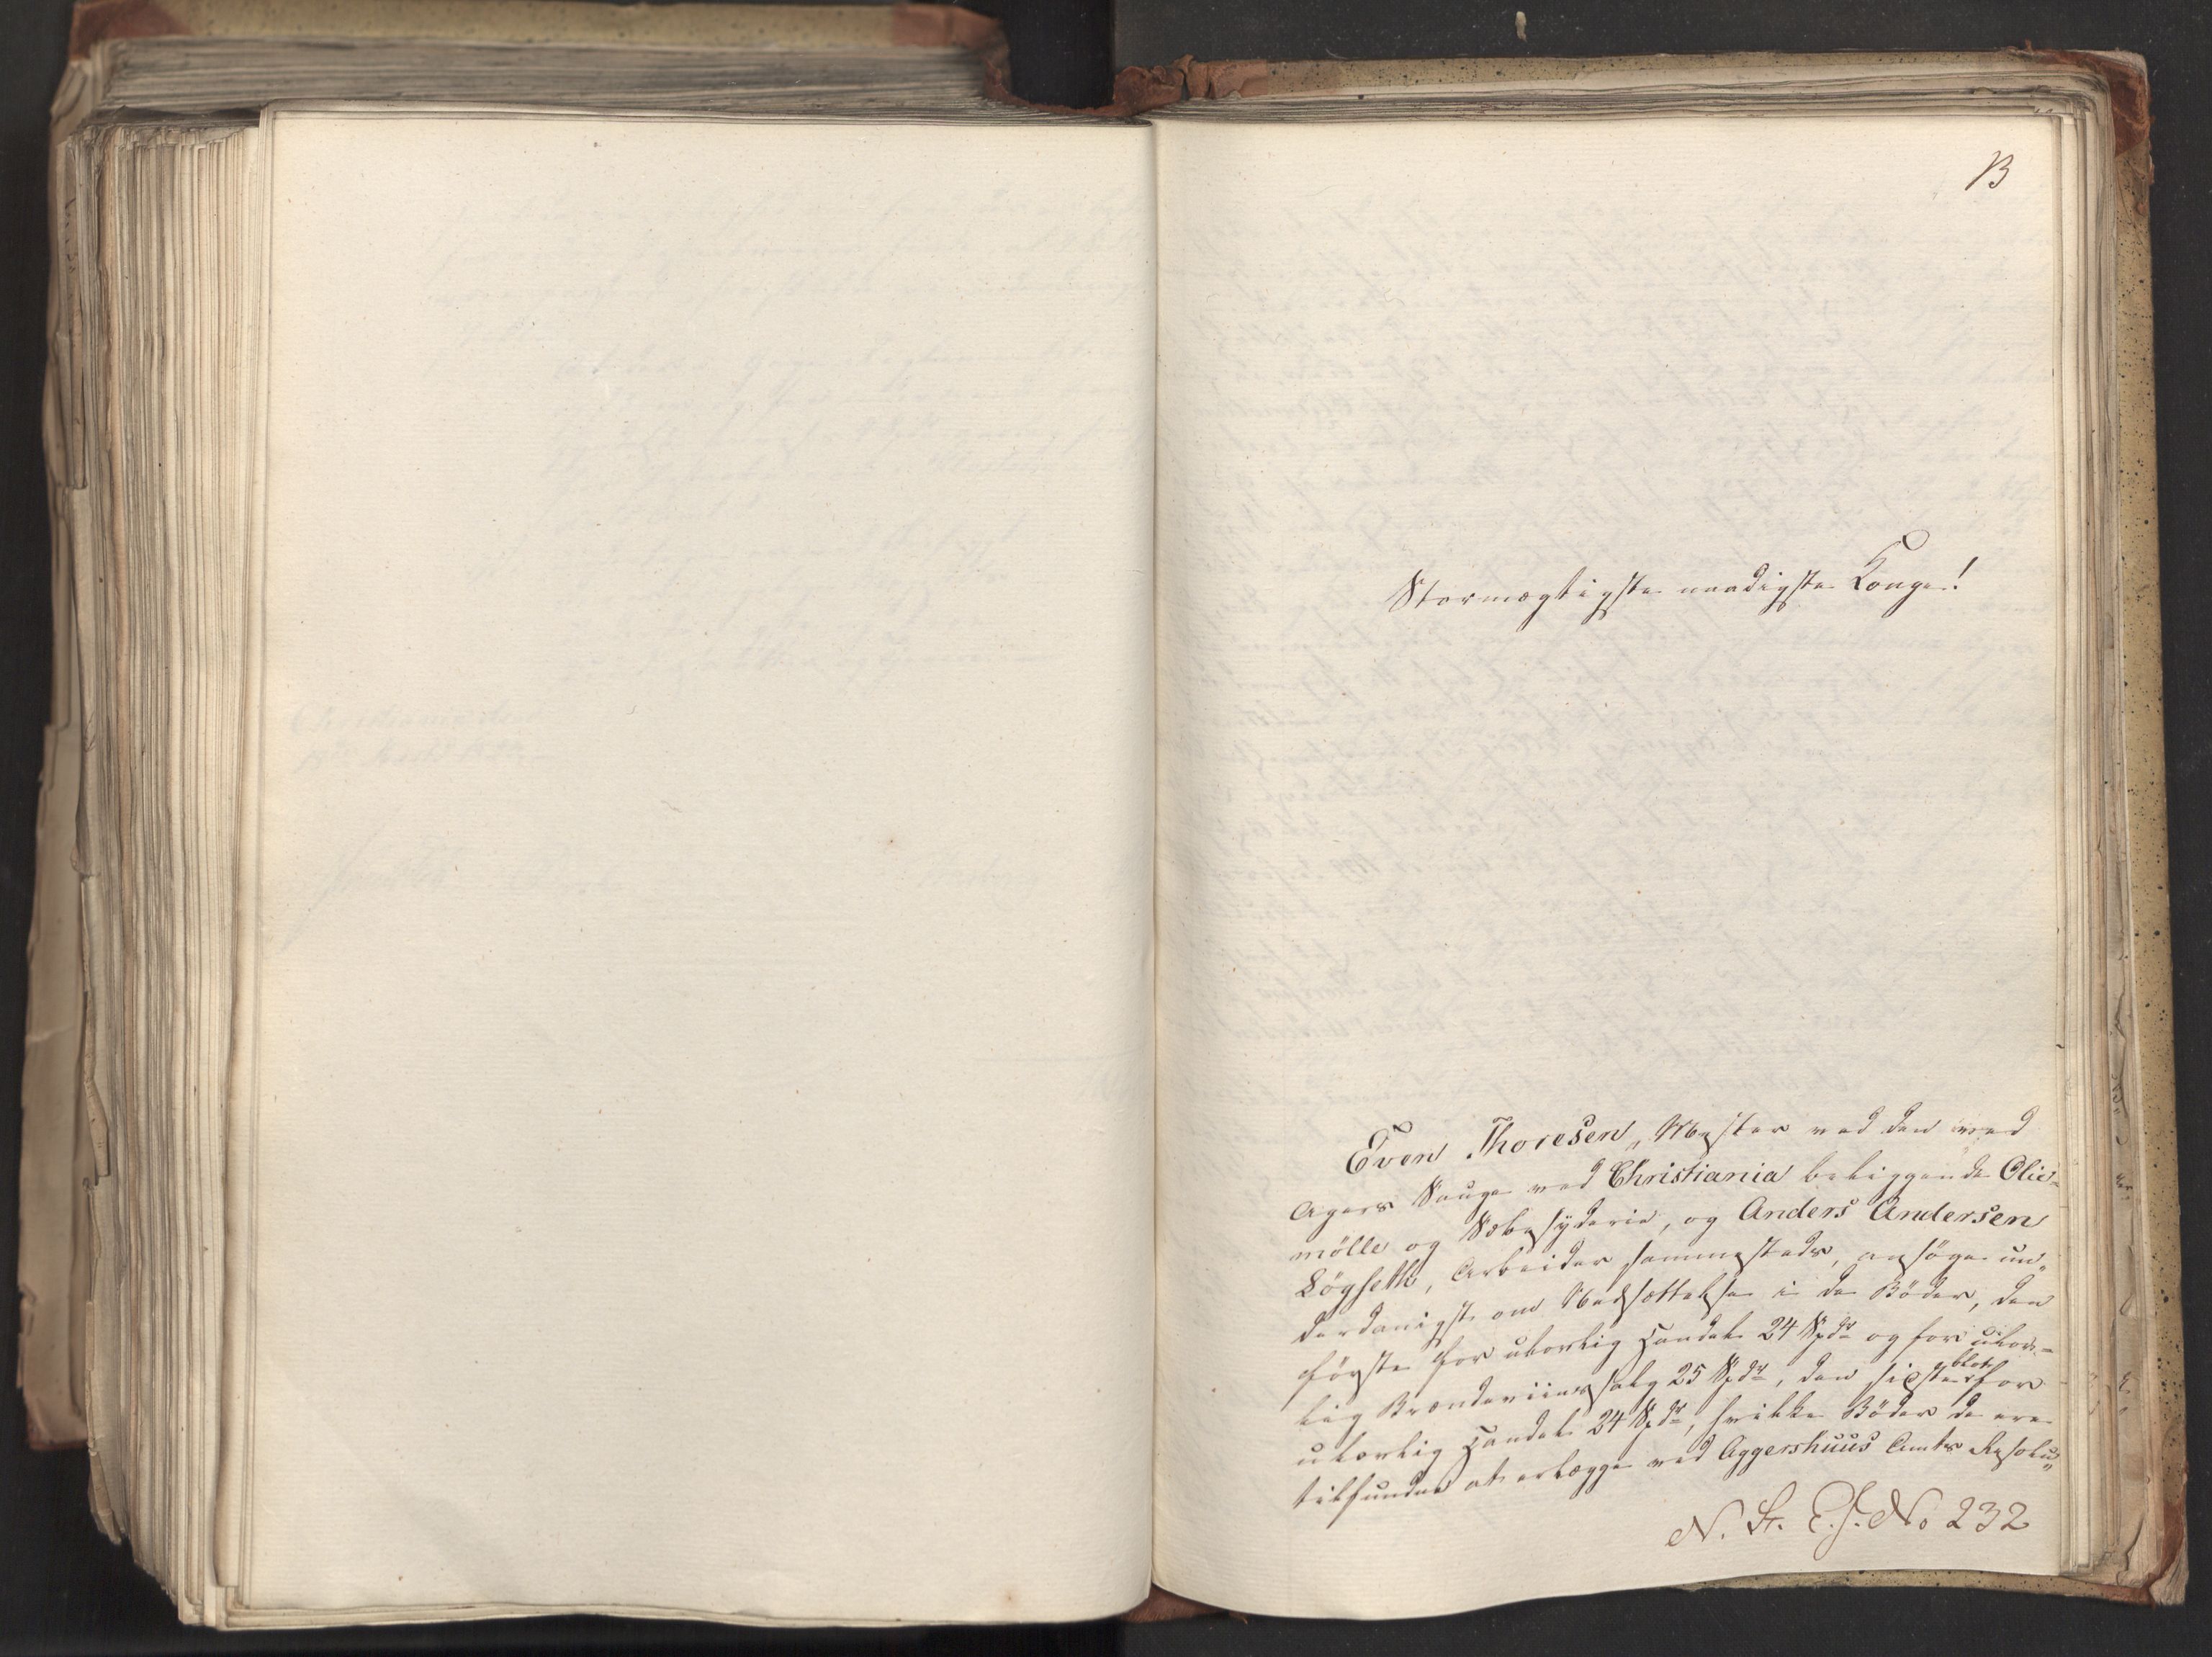 B
Stormægtigste naadigste Konge!
Even Thoresen, Mester ved den ved
Agers Sauge ved Christiania beliggende Olie-
mölle og Sæbesyderie, og Anders Andersen
Lögseth, Arbeider sammesteds, ansöge un„
derdanigst om Nedsættelse i de Böder, den
förste for ulovlig Handel 24 Spdr og for ulov-
lig Brændeviinssalg 25 Spdr, den sidste blot for
ulovlig Handel 24 Spdr, hvilke Böder de ere
tilfundne at erlægge ved Aggershuus Amts Resolu„
N. St. E. J. No 232